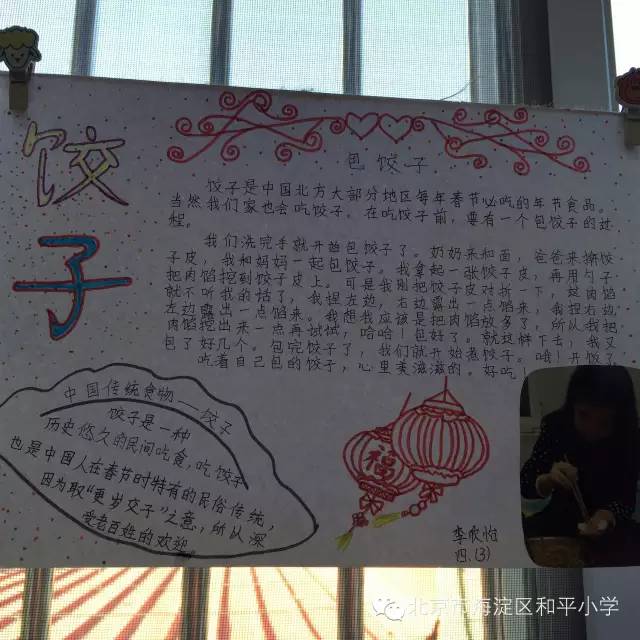 饺子
包饺子
饺子是中国北方大部分地区每年春节必吃的年节食品。
当然我们家也会吃饺子。在吃饺子前，要有一个包饺子的过
程。
我们洗完手就开始包饺子了。奶奶来和面，爸爸来擀饺
子皮，我和妈妈一起包饺子。我拿起一张饺子皮，再用勺子
把肉馅挖到饺子皮上。可是我刚把饺子皮对折一下，是肉馅
就不听我的话了，我捏左边，右边露出一点馅来，我捏右边，
左边露出一点馅来。我想我应该是把肉馅放多了，所以我把
肉馅挖出来一点再试试，哈哈！包好了。就这样下去，我又
包了好几个。包完饺子了，我们就开始煮饺子。哦！开饺了
吃着自己包的饺子，心里美滋滋的。好吃！
中国传统食物—饺子
饺子是一种
历史悠久的民间吃食，吃饺子
也是中国人在春节时特有的民俗传统，
因为取“更岁交子”之意，所以深
受老百姓的欢迎
福
李欣怡
四.(3)
北京市海淀区和平小学